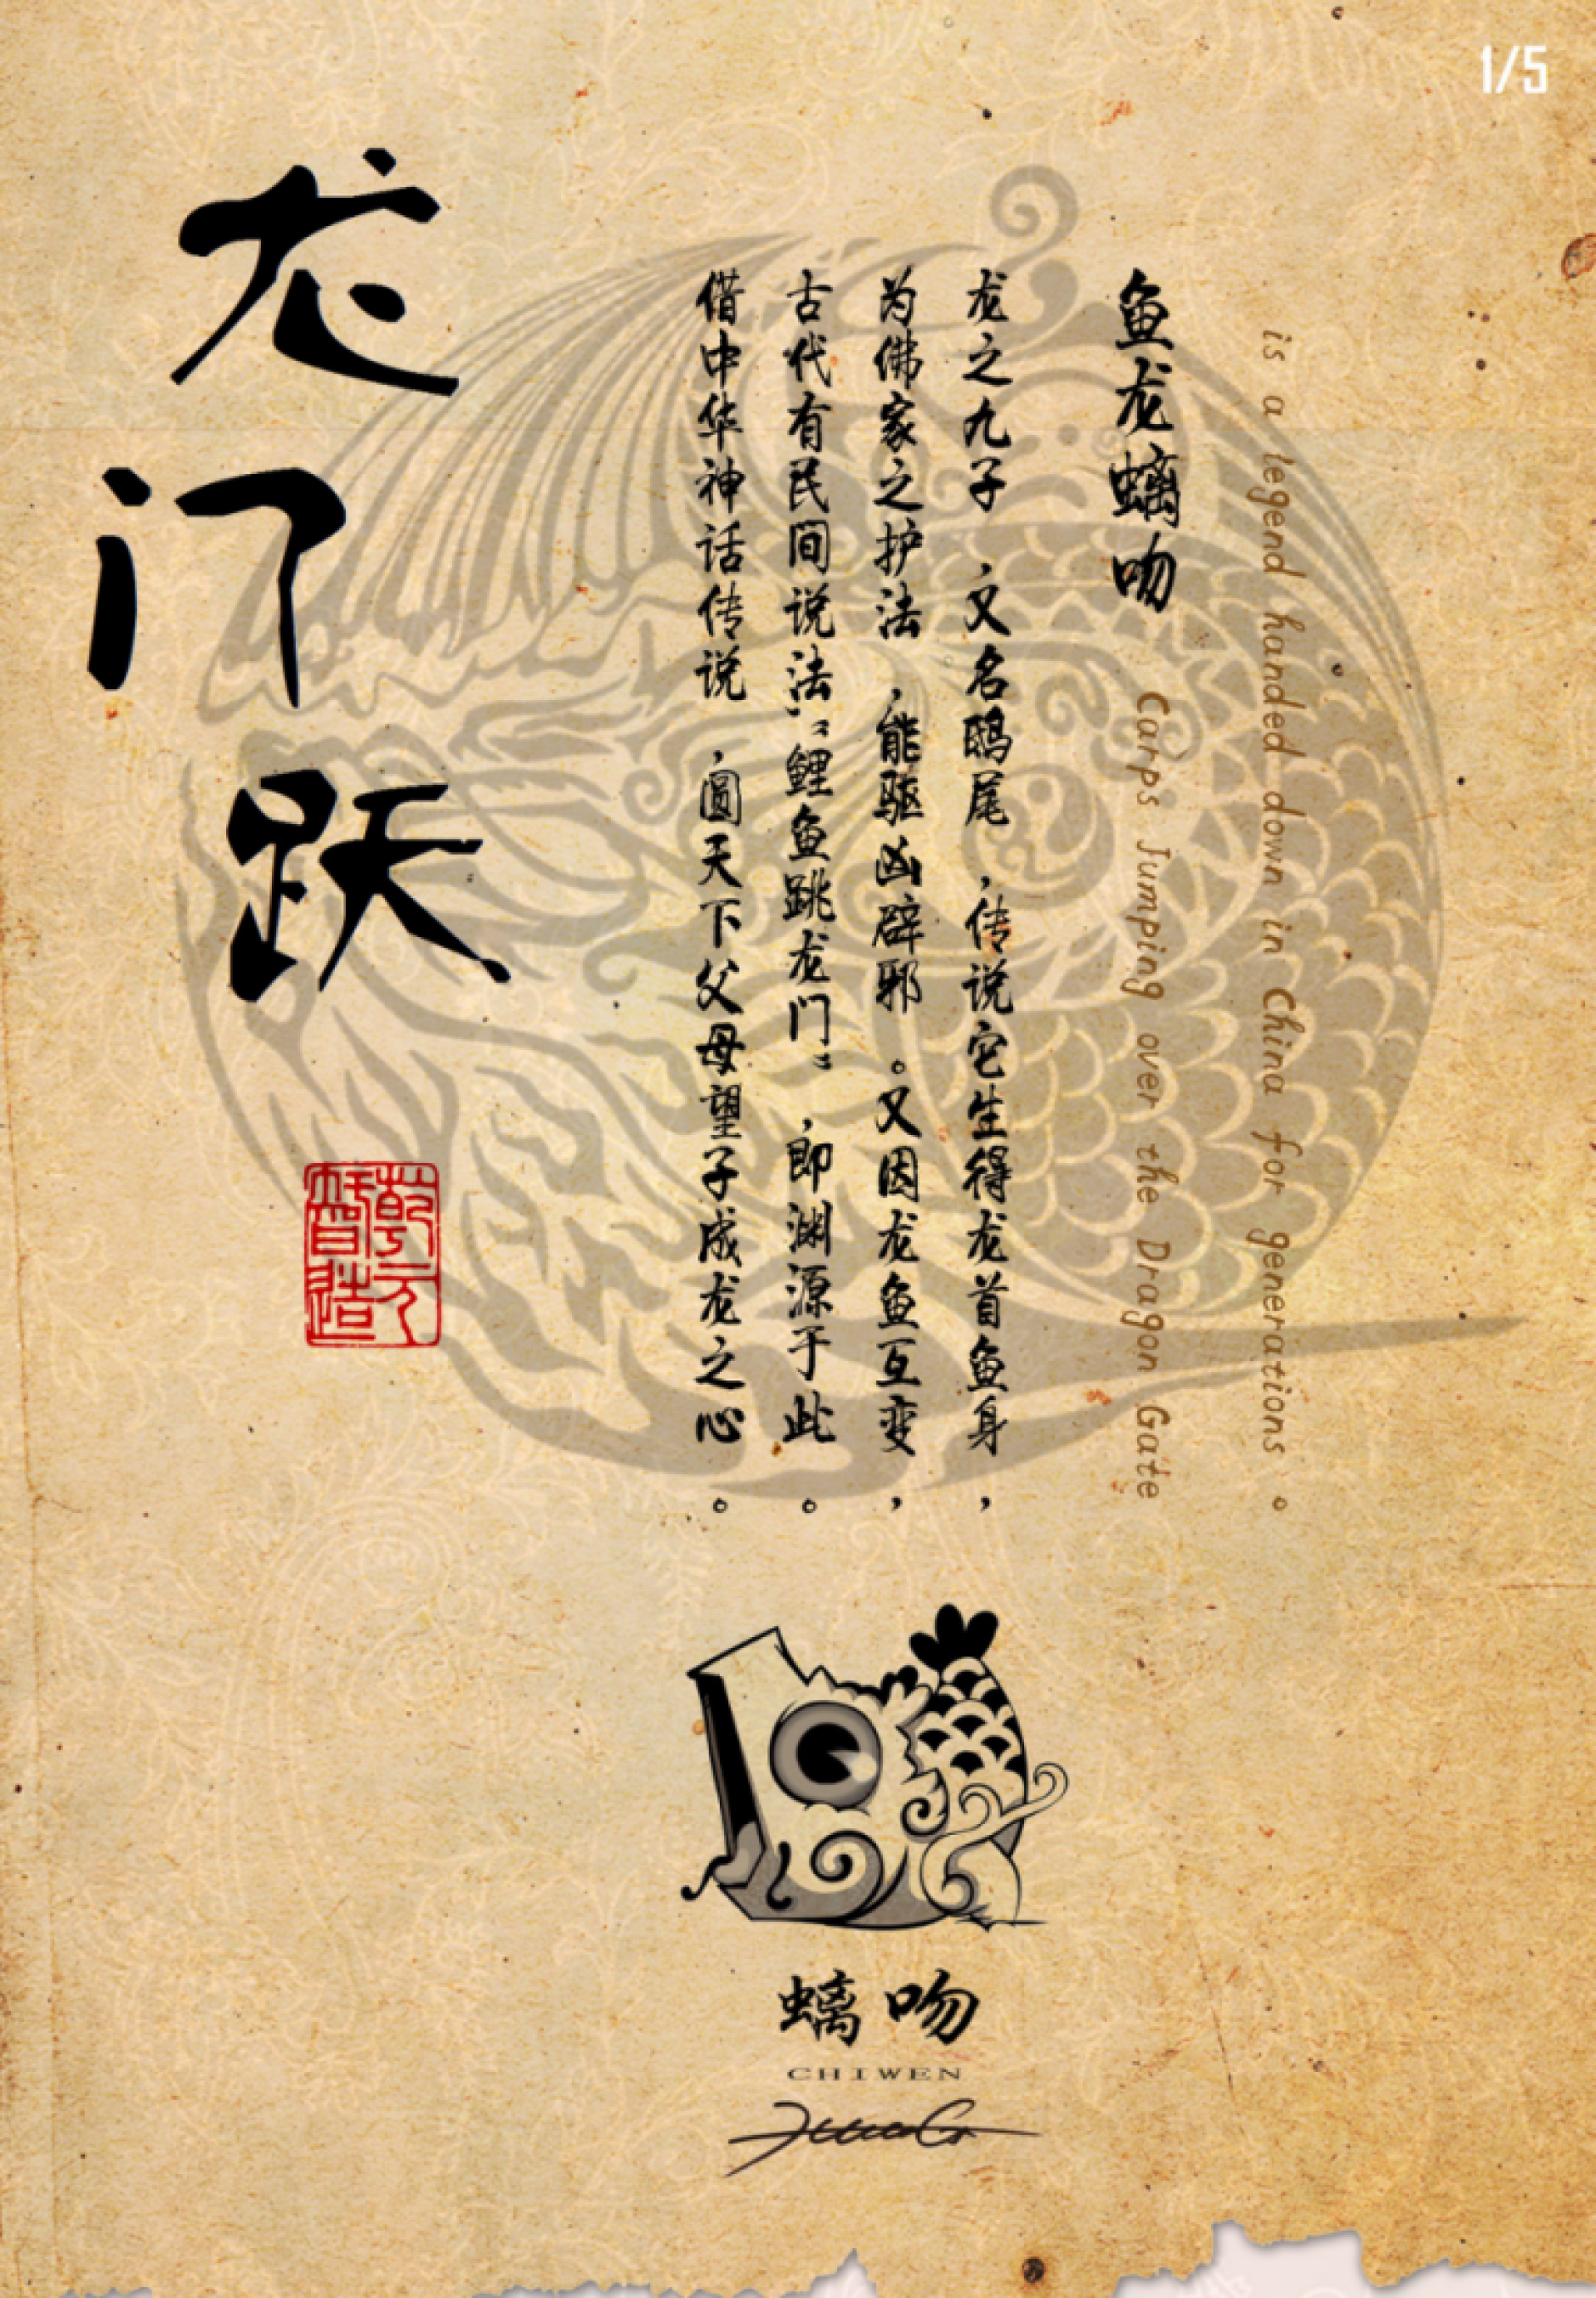 1/5
龙门跃
is a legend handed down in China for generations。
Carps Jumping over the Dragon Gate
鱼龙螭吻
龙之九子，又名鸱尾，传说它生得龙首鱼身，
为佛家之护法，能驱凶辟邪。又因龙鱼互变，
古代有民间说法，“鲤鱼跳龙门”，即渊源于此。
借中华神话传说，圆天下父母望子成龙之心。
乾元智造
螭吻
CHIWEN